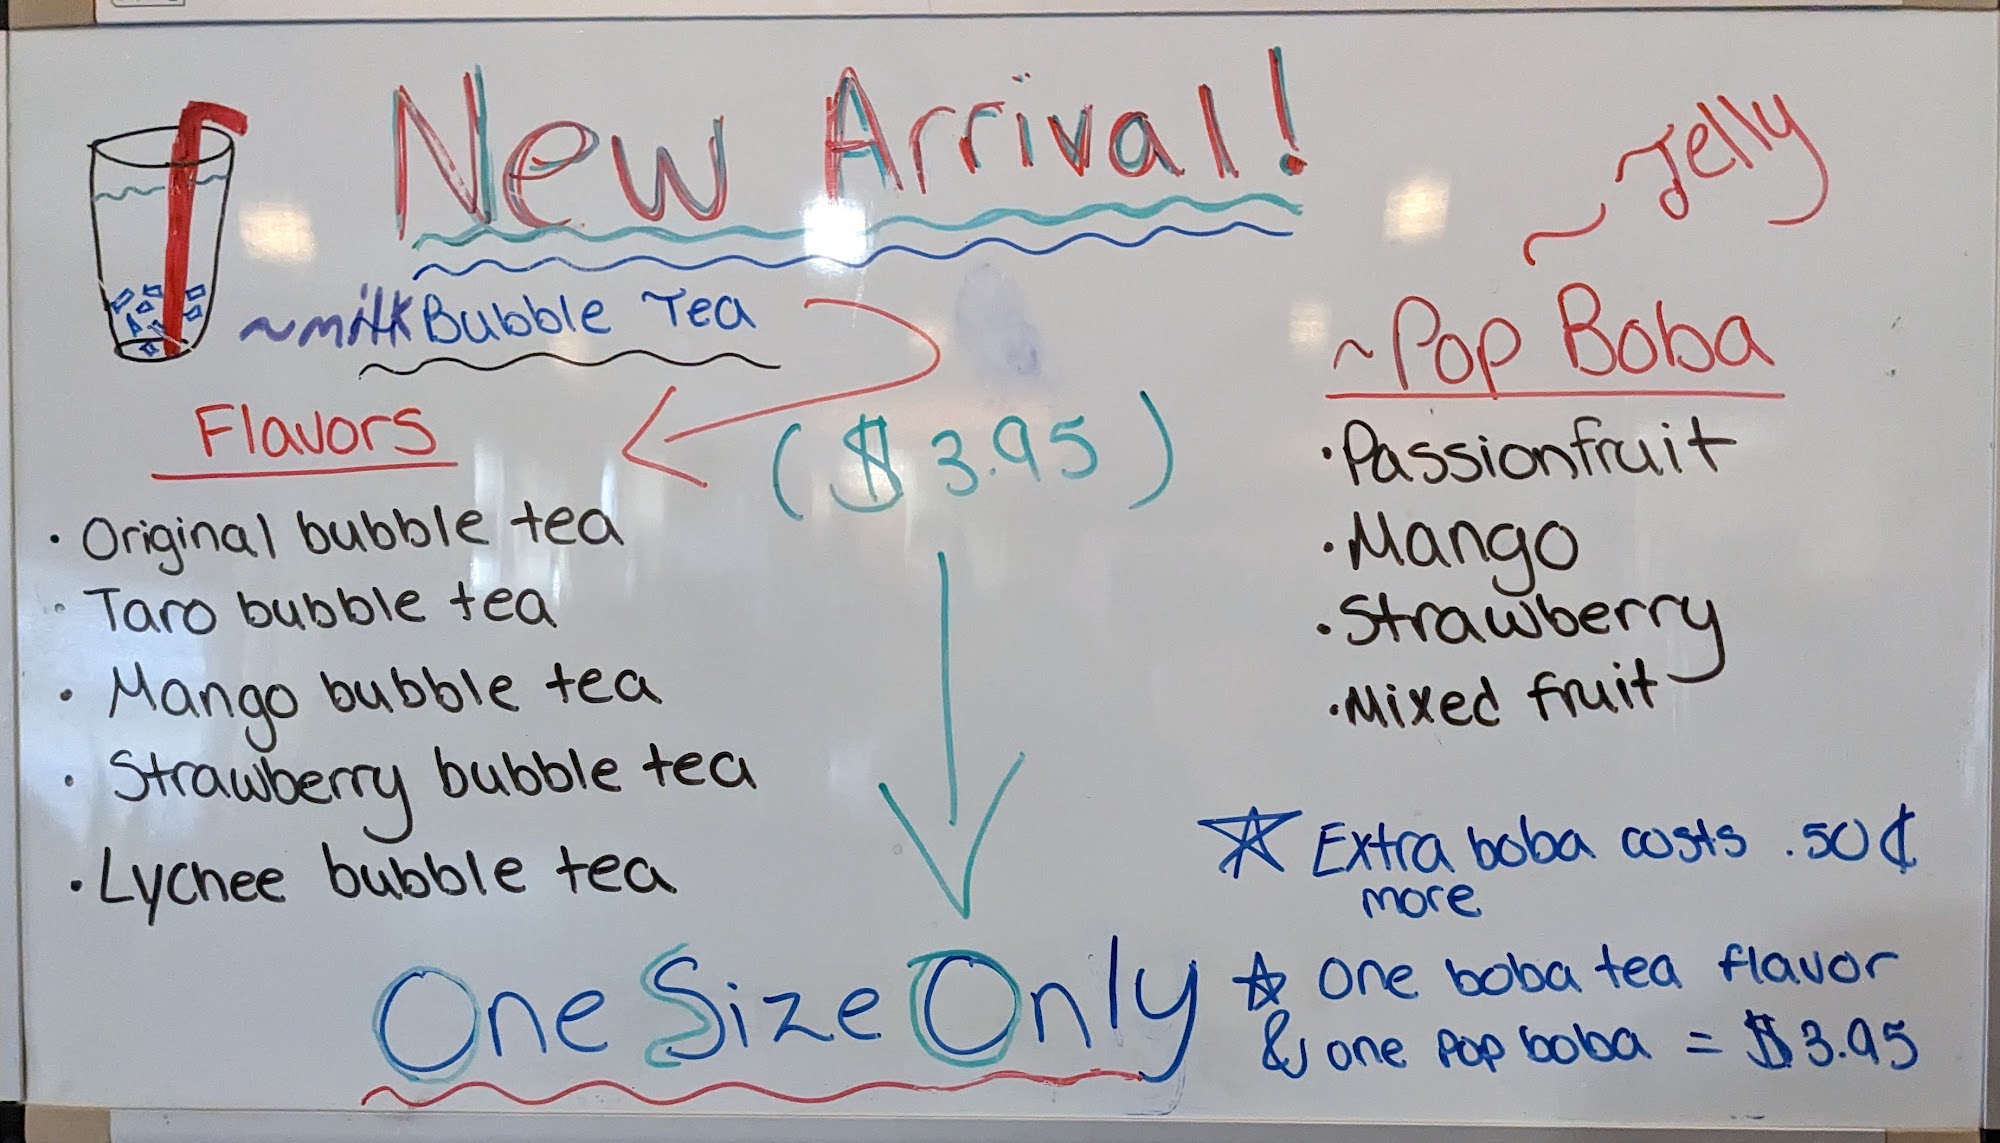 New Arrival!
~milk Bubble Tea
($3.95)
Flavors
• Original bubble tea
• Taro bubble tea
• Mango bubble tea
• Strawberry bubble tea
• Lychee bubble tea
One Size Only
~Jelly
~Pop Boba
• Passionfruit
• Mango
• Strawberry
• Mixed fruit
☆ Extra boba costs .50¢
more
☆ One boba tea flavor
& one pop boba = $3.95